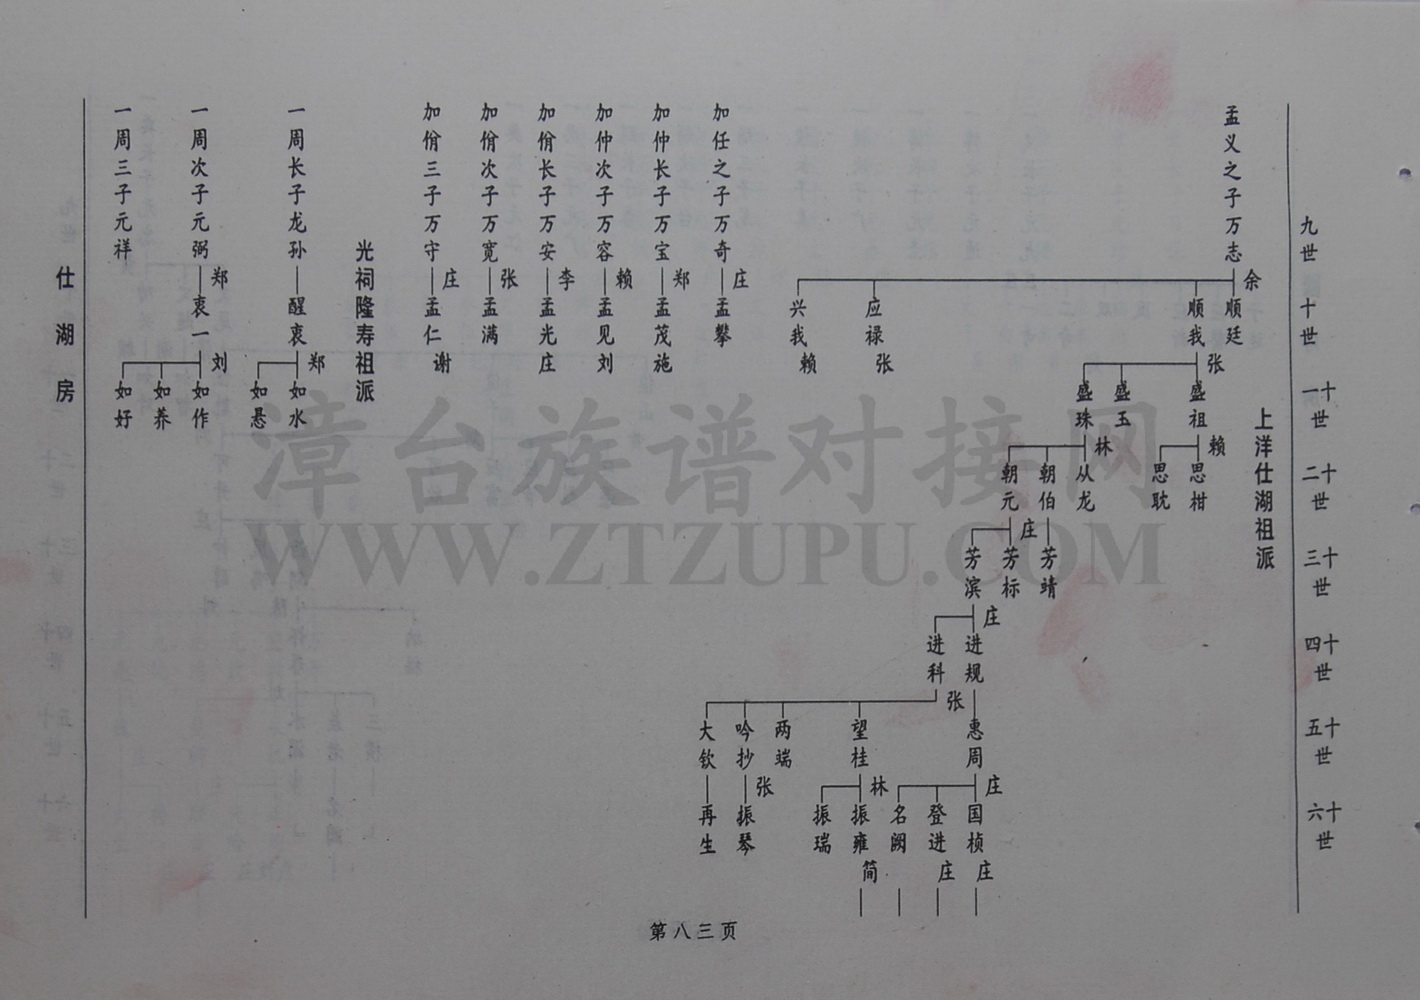 九世
十世
十一世
十二世
十三世
十四世
十五世
十六世
上洋仕湖祖派
孟义之子万志
余
顺廷
顺我
应禄
兴我
张
赖
张
盛祖
盛玉
盛珠
赖
林
思柑
思耽
从龙
朝伯
朝元
庄
芳靖
芳标
芳滨
庄
进规
进科
张
惠周
望桂
两端
吟抄
大钦
庄
林
张
国桢
登进
名阙
振雍
振瑞
振琴
再生
庄
庄
简
加任之子万奇
庄
孟攀
加仲长子万宝
郑
孟茂
施
加仲次子万容
赖
孟见
刘
加佾长子万安
李
孟光
庄
加佾次子万宽
张
孟满
加佾三子万守
庄
孟仁
谢
光祠隆寿祖派
一周长子龙孙
醒衷
郑
如水
如恳
一周次子元弼
郑
衷一
刘
如作
如养
如好
一周三子元祥
仕湖房
第八三页
漳台族谱对接网
WWW.ZTZUPU.COM